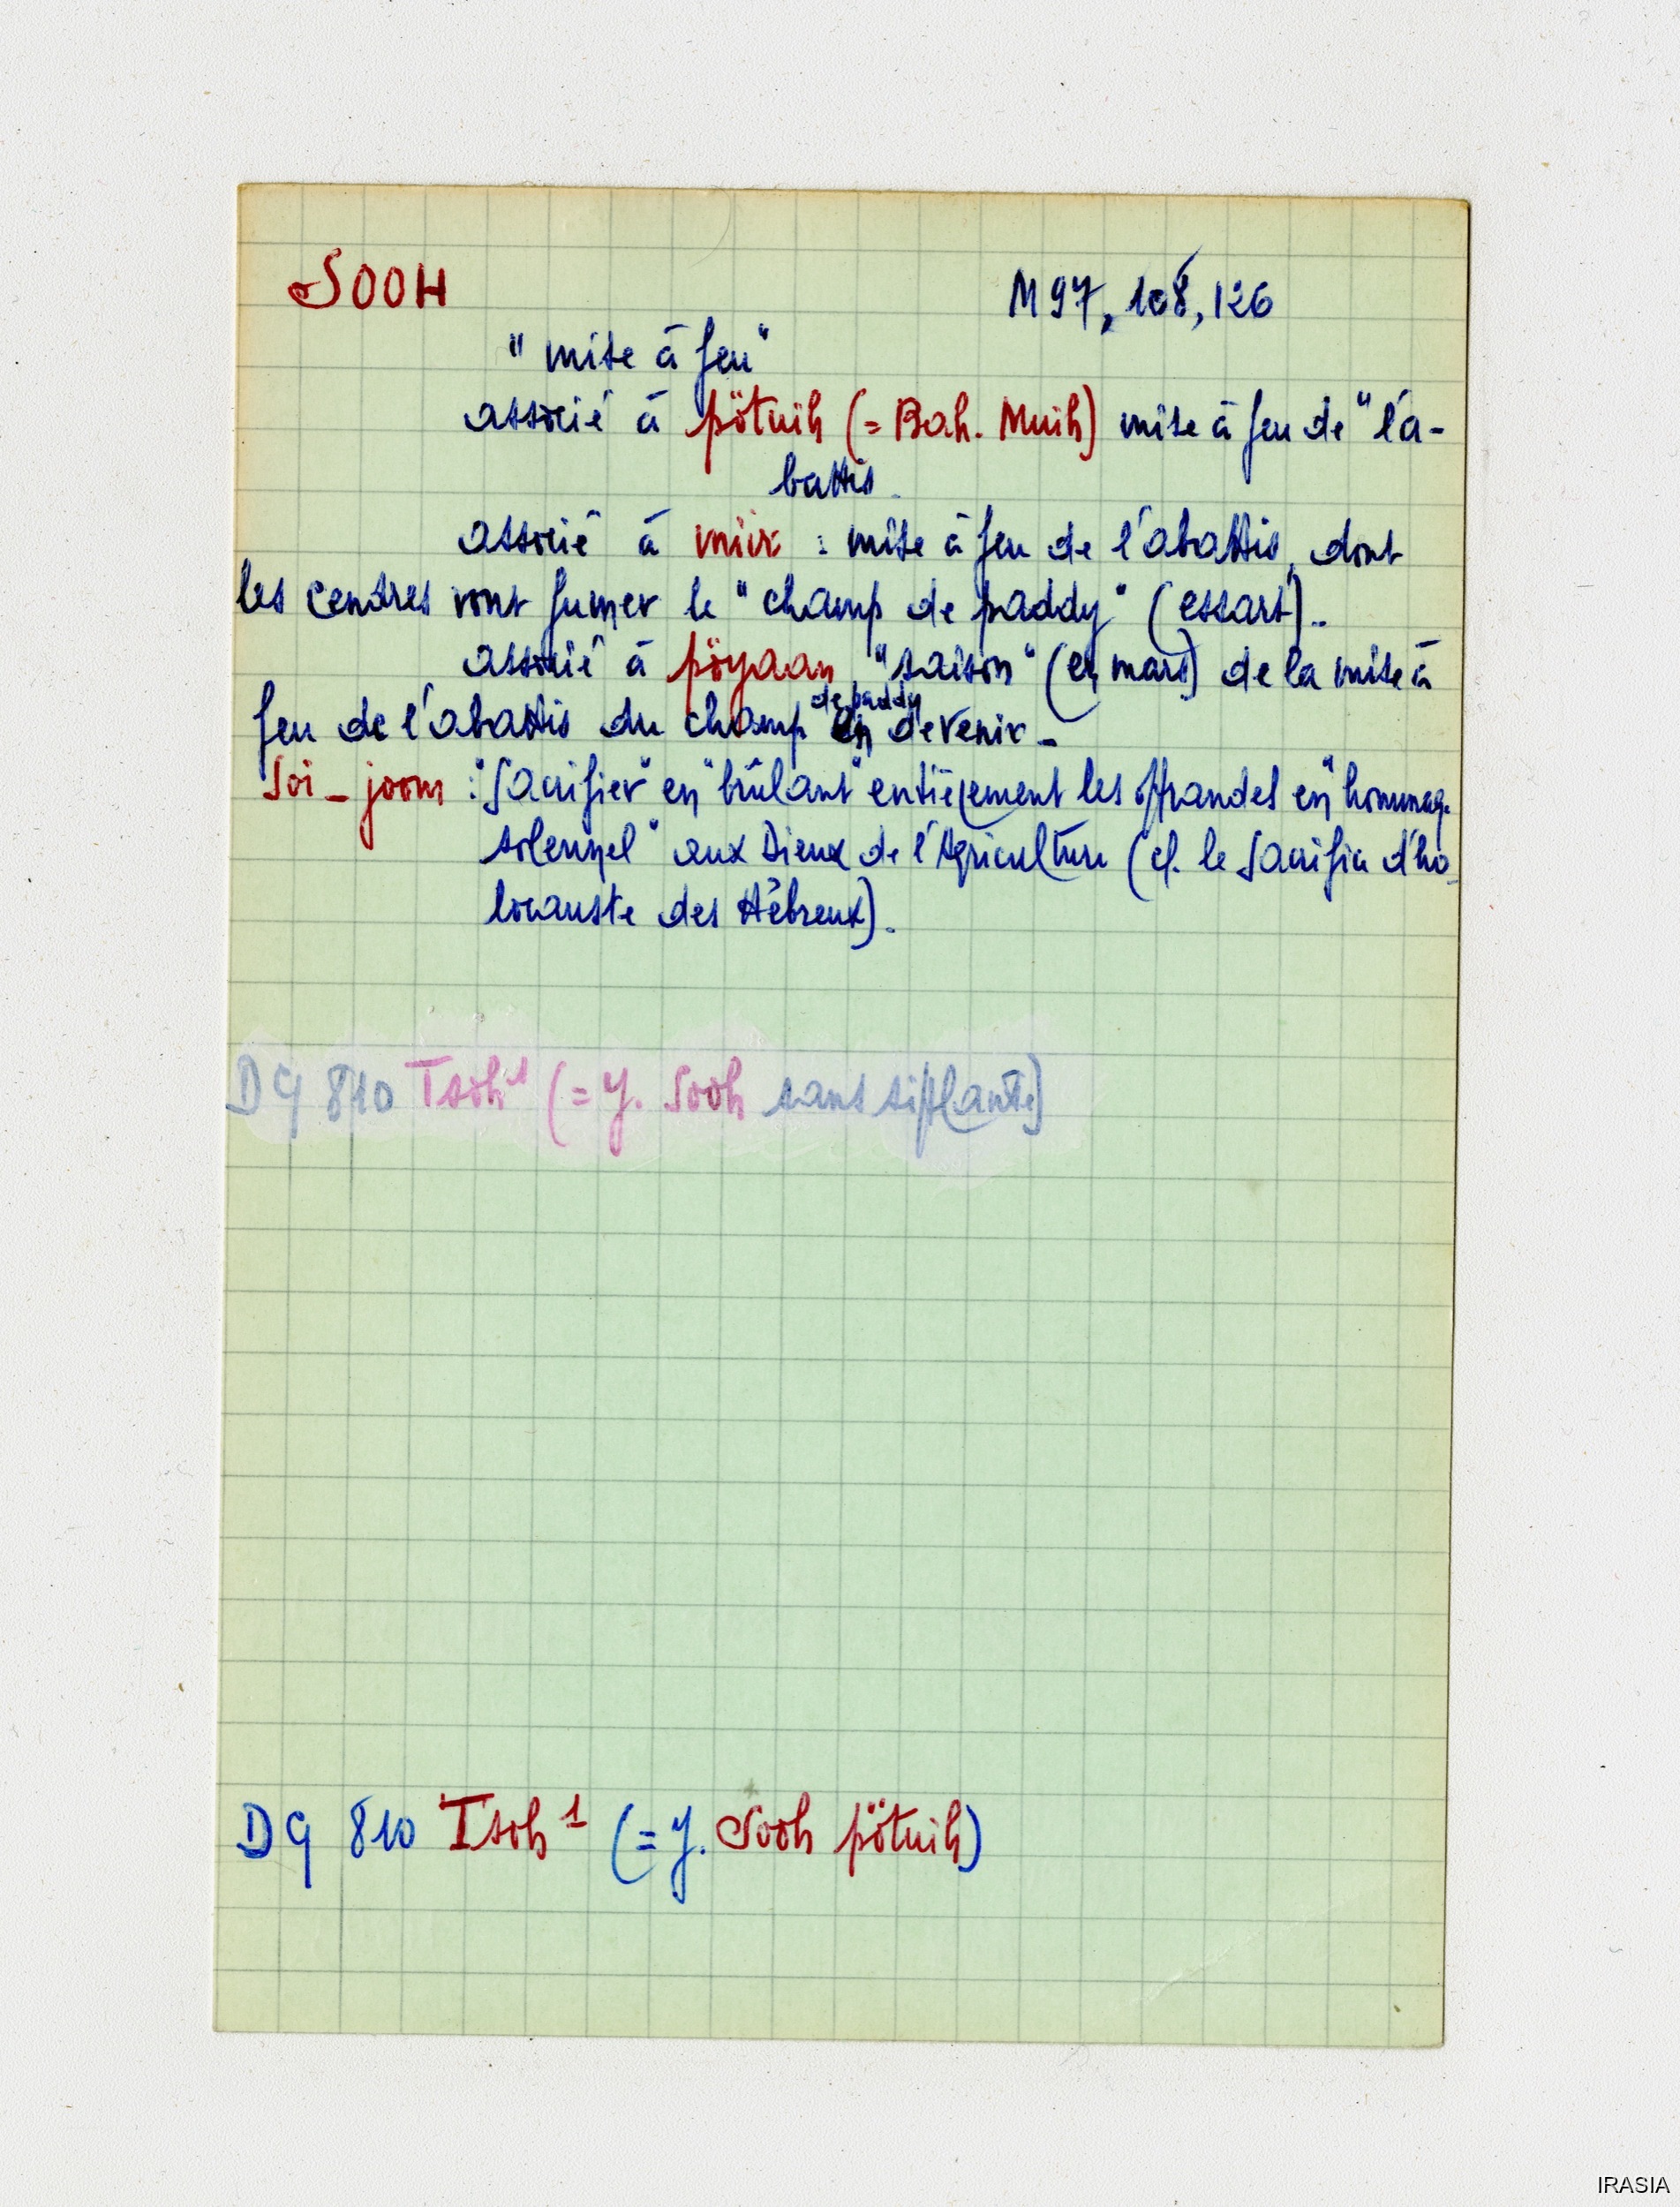 SOOH M 97, 108, 126
"mise à feu"
associé à pötuih (= Bah. Muih) mise à feu de "l'a-
battis.
associé à mir : mise à feu de l'abattis, dont
les cendres vont fumer le "champ de paddy" (essart).
associé à pöyaan, "saison" (en mars) de la mise à
feu de l'abattis du champ de paddy en devenir.
Soi-joom : "Sacrifier" en "brûlant" entièrement les offrandes en "hommag.
solennel" aux Dieux de l'Agriculture (cf. le Sacrifice d'ho-
locauste des Hébreux).
DG 810 Tsoh¹ (= y. Sooh sans sifflante)
DG 810 Tsoh¹ (= y. Sooh pötuih)
IRASIA